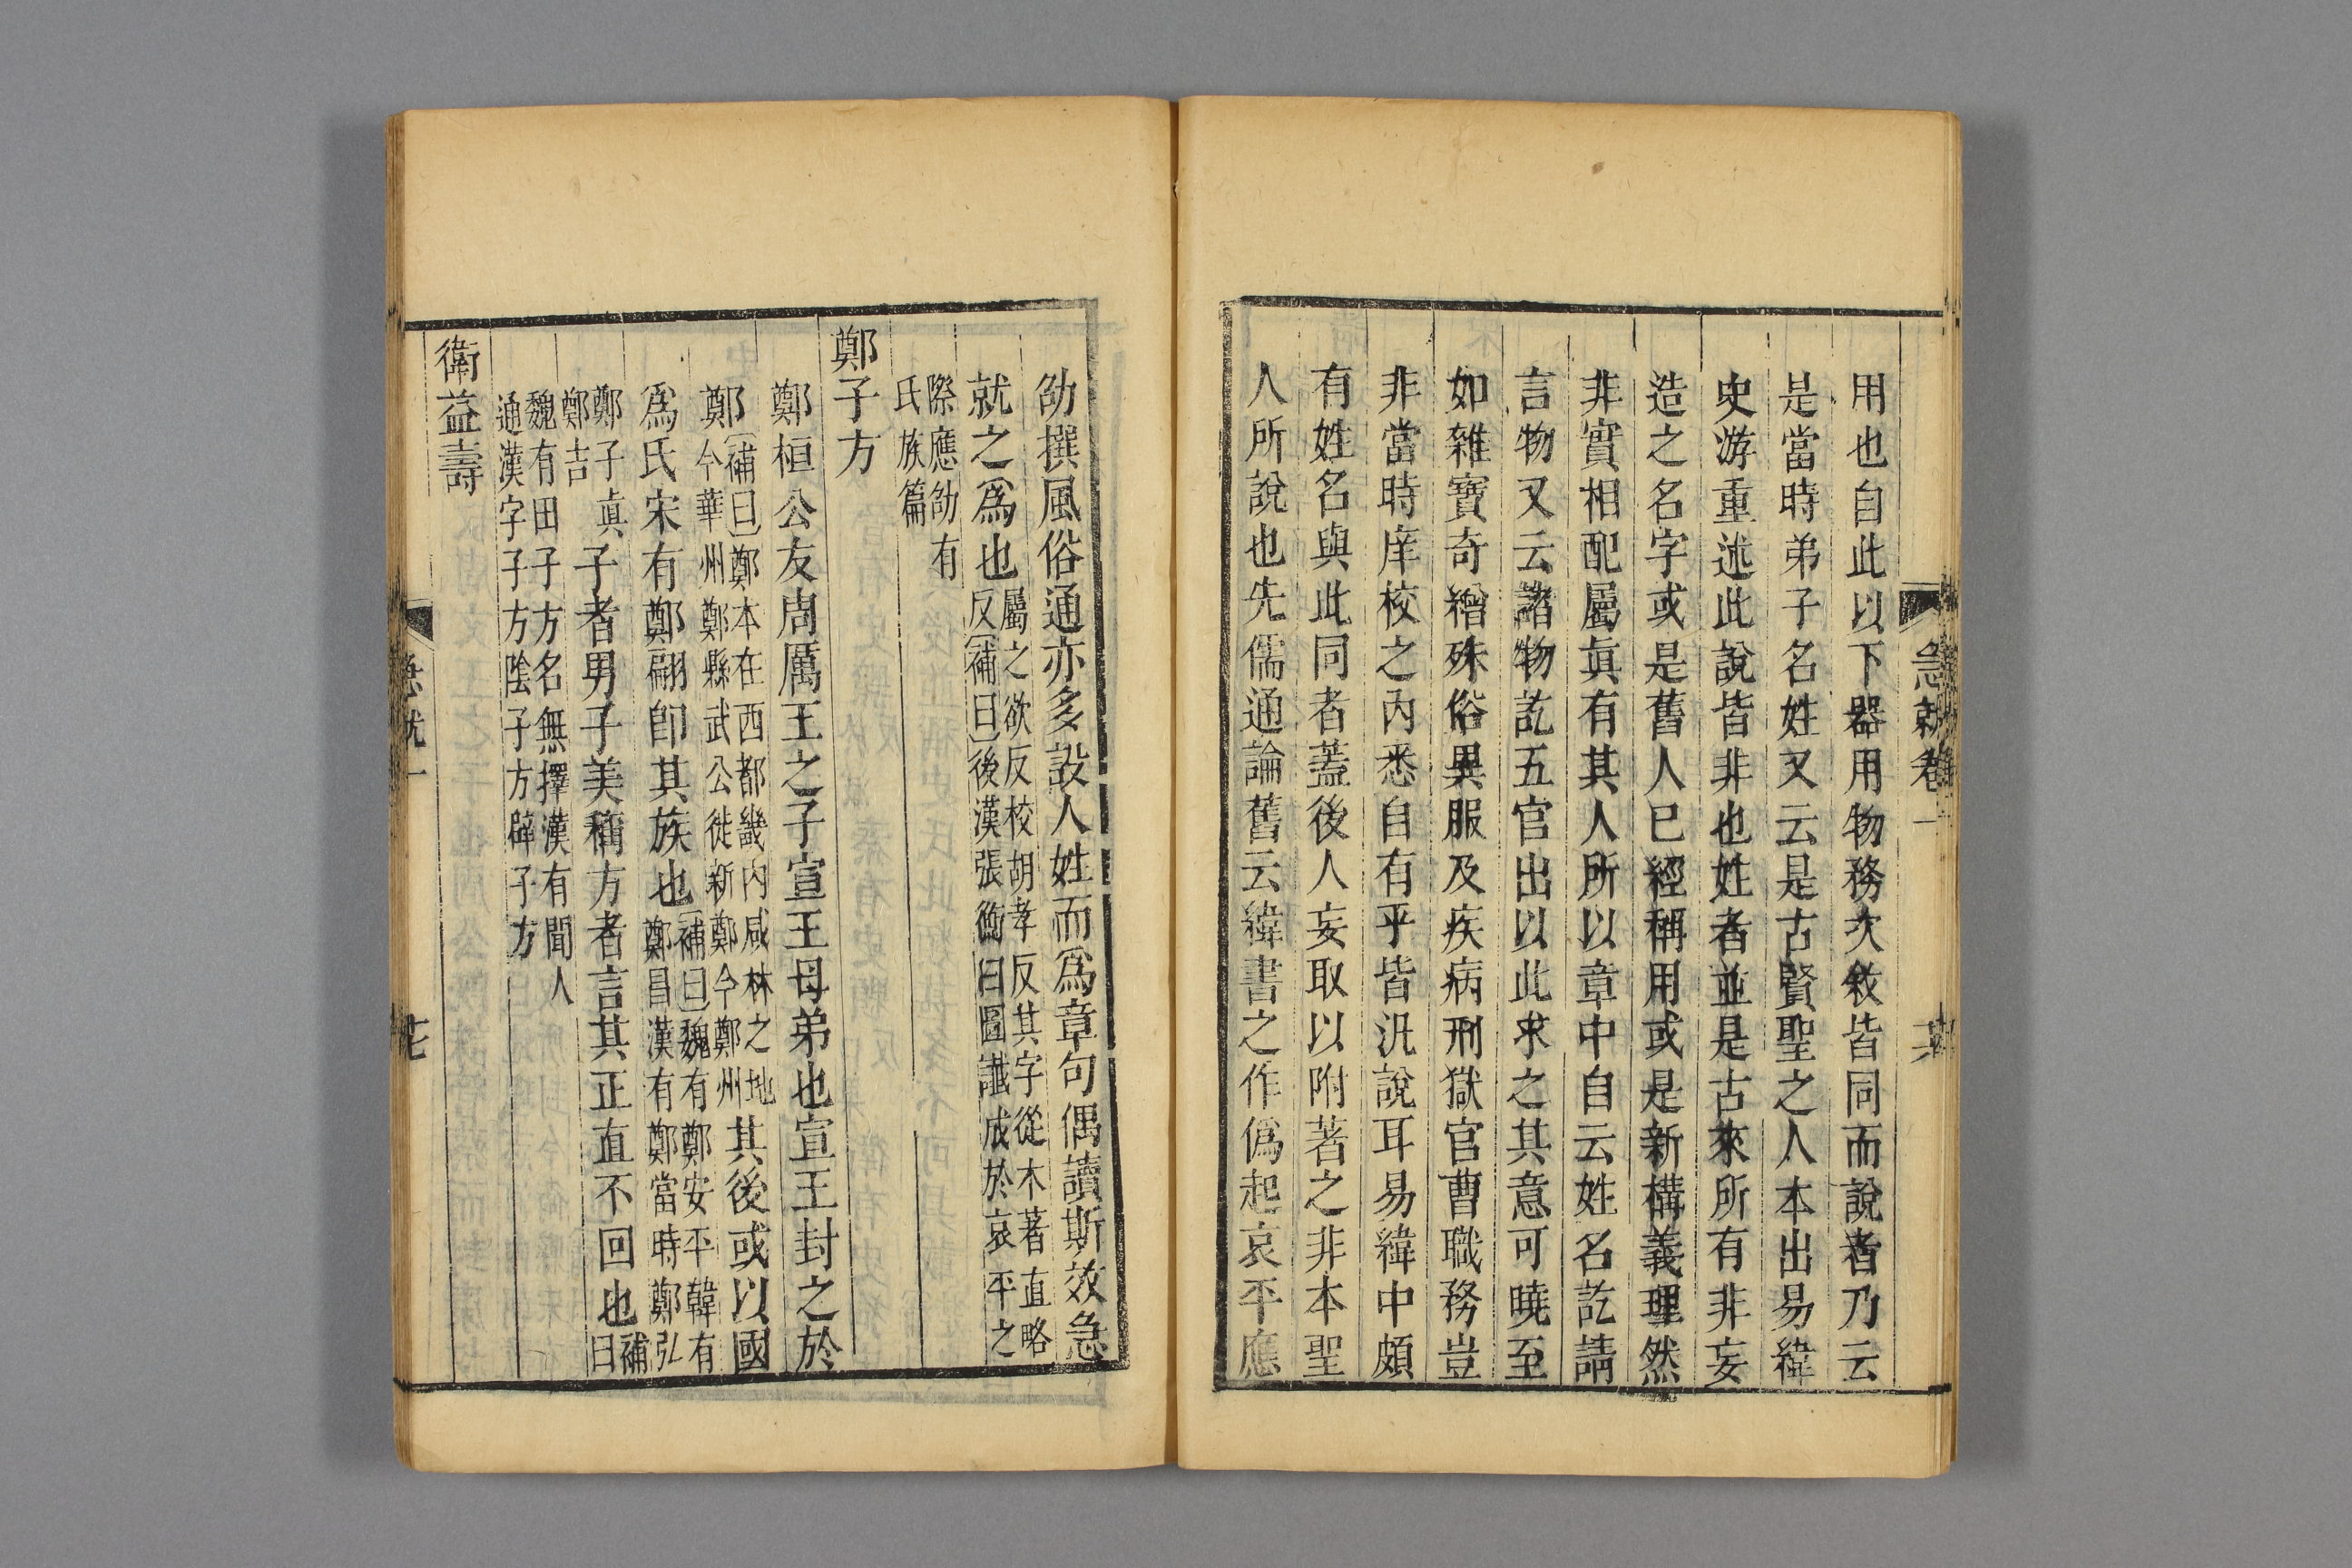 急就卷一
用也自此以下器用物務次敘皆同而說者乃云
是當時弟子名姓又云是古賢聖之人本出易緯
史游重述此說皆非也姓者並是古來所有非妄
造之名字或是舊人已經稱用或是新構義理然
非實相配屬真有其人所以章中自云姓名訖請
言物又云諸物訖五官出以此求之其意可曉至
如雜寶奇繒殊俗異服及疾病刑獄官曹職務豈
非當時庠校之內悉自有乎皆汎說耳易緯中頗
有姓名與此同者蓋後人妄取以附著之非本聖
人所說也先儒通論舊云緯書之作偽起哀平應
劭撰風俗通亦多設人姓而爲章句偶讀斯效急
就之爲也屬之欲反校胡孝反其字從木著直略
反〔補曰〕後漢張衡曰圖讖成於哀平之
際應劭有
氏族篇
鄭子方
鄭桓公友周厲王之子宣王母弟也宣王封之於
鄭〔補曰〕鄭本在西都畿內咸林之地
今華州鄭縣武公徙新鄭今鄭州其後或以國
爲氏宋有鄭翩卽其族也〔補曰〕魏有鄭安平韓有
鄭昌漢有鄭當時鄭弘
鄭子真
鄭吉子者男子美稱方者言其正直不回也補
曰
魏有田子方名無擇漢有聞人
通漢字子方陰子方辟子方
衛益壽
急就一